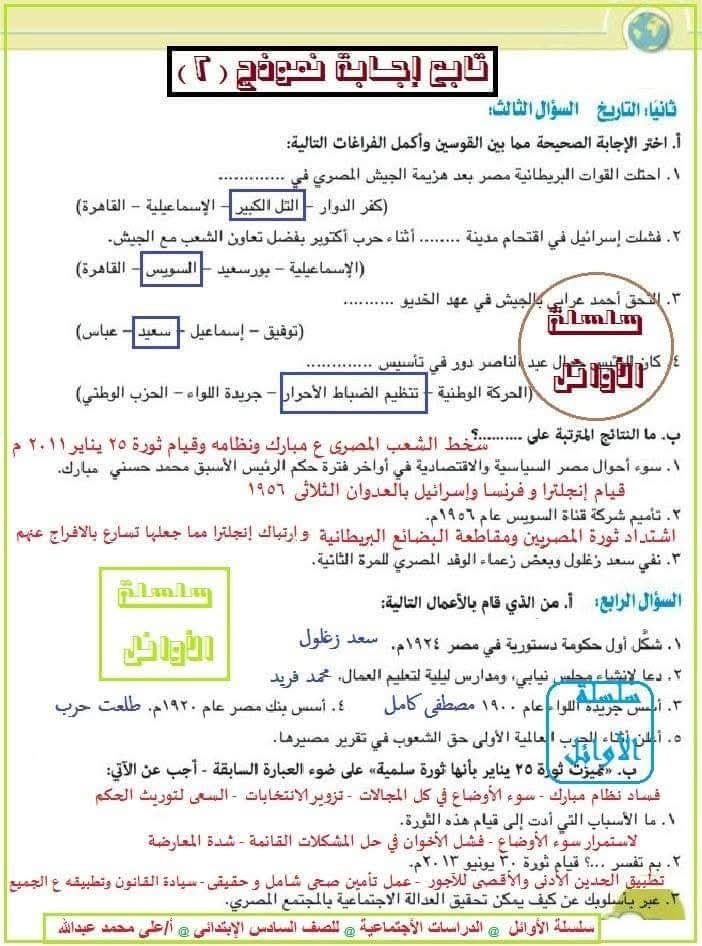 تابع إجابة نموذج (٢)
ثانيًا: التاريخ السؤال الثالث:
أ. اختر الإجابة الصحيحة مما بين القوسين وأكمل الفراغات التالية:
١. احتلت القوات البريطانية مصر بعد هزيمة الجيش المصري في .............
(كفر الدوار - التل الكبير - الإسماعيلية - القاهرة)
٢. فشلت إسرائيل في اقتحام مدينة ........ أثناء حرب أكتوبر بفضل تعاون الشعب مع الجيش.
(الإسماعيلية - بورسعيد - السويس - القاهرة)
٣. التحق أحمد عرابي بالجيش في عهد الخديو ..........
(توفيق - إسماعيل - سعيد - عباس)
سلسلة الأوائل
٤. كان للرئيس جمال عبد الناصر دور في تأسيس .............
(الحركة الوطنية - تنظيم الضباط الأحرار - جريدة اللواء - الحزب الوطني)
ب. ما النتائج المترتبة على ..........؟
سخط الشعب المصرى ع مبارك ونظامه وقيام ثورة ٢٥ يناير ٢٠١١ م
١. سوء أحوال مصر السياسية والاقتصادية في أواخر فترة حكم الرئيس الأسبق محمد حسني مبارك.
قيام إنجلترا و فرنسا وإسرائيل بالعدوان الثلاثى ١٩٥٦
٢. تأميم شركة قناة السويس عام ١٩٥٦م.
اشتداد ثورة المصريين ومقاطعة البضائع البريطانية و إرتباك إنجلترا مما جعلها تسارع بالافراج عنهم
٣. نفي سعد زغلول وبعض زعماء الوفد المصري للمرة الثانية.
سلسلة الأوائل
السؤال الرابع: أ. من الذي قام بالأعمال التالية:
١. شكَّل أول حكومة دستورية في مصر ١٩٢٤م. سعد زغلول
٢. دعا لإنشاء مجلس نيابي، ومدارس ليلية لتعليم العمال، محمد فريد
٣. أسس جريدة اللواء عام ١٩٠٠ مصطفى كامل ٤. أسس بنك مصر عام ١٩٢٠م. طلعت حرب
سلسلة الأوائل
٥. أعلن أثناء الحرب العالمية الأولى حق الشعوب في تقرير مصيرها.
ب. «تميزت ثورة ٢٥ يناير بأنها ثورة سلمية» على ضوء العبارة السابقة - أجب عن الآتي:
فساد نظام مبارك - سوء الأوضاع في كل المجالات - تزوير الانتخابات - السعى لتوريث الحكم
١. ما الأسباب التي أدت إلى قيام هذه الثورة.
لاستمرار سوء الأوضاع - فشل الأخوان في حل المشكلات القائمة - شدة المعارضة
٢. بم تفسر ...؟ قيام ثورة ٣٠ يونيو ٢٠١٣م.
تطبيق الحدين الأدنى والأقصى للآجور - عمل تأمين صحى شامل و حقيقى - سيادة القانون وتطبيقه ع الجميع
٣. عبر بأسلوبك عن كيف يمكن تحقيق العدالة الاجتماعية بالمجتمع المصري.
سلسلة الأوائل @ الدراسات الأجتماعية @ للصف السادس الإبتدائى @ أ/على محمد عبدالله